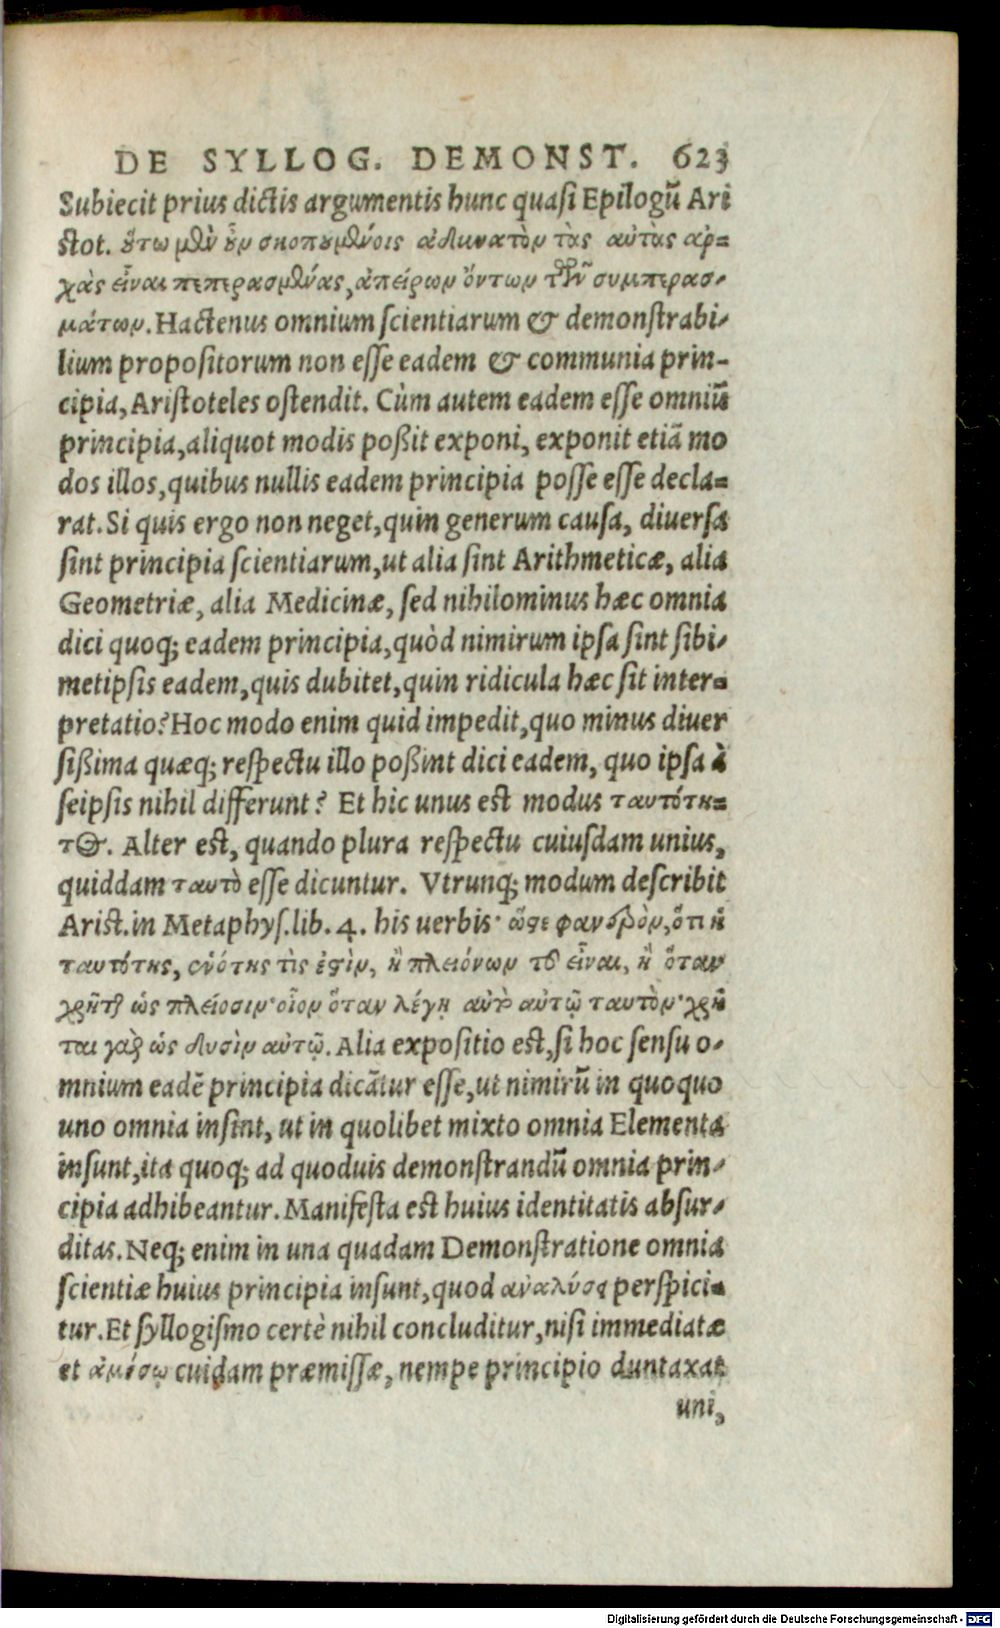 DE SYLLOG. DEMONST. 623
Subiecit prius dictis argumentis hunc quasi Epilogū Ari
stot. οὕτω μὲν οὖν σκοπουμένοις ἀδύνατον τὰς αὐτὰς ἀρ=
χὰς εἶναι πεπερασμένας, ἀπείρων ὄντων τῶν συμπερασ-
μάτων. Hactenus omnium scientiarum & demonstrabi-
lium propositorum non esse eadem & communia prin-
cipia, Aristoteles ostendit. Cùm autem eadem esse omniū
principia, aliquot modis poßit exponi, exponit etiā mo
dos illos, quibus nullis eadem principia posse esse decla=
rat. Si quis ergo non neget, quin generum causa, diuersa
sint principia scientiarum, ut alia sint Arithmeticæ, alia
Geometriæ, alia Medicinæ, sed nihilominus hæc omnia
dici quoq; eadem principia, quòd nimirum ipsa sint sibi-
metipsis eadem, quis dubitet, quin ridicula hæc sit inter=
pretatio? Hoc modo enim quid impedit, quo minus diuer
sißima quæq; respectu illo poßint dici eadem, quo ipsa à
seipsis nihil differunt? Et hic unus est modus ταυτότη=
τος. Alter est, quando plura respectu cuiusdam unius,
quiddam ταυτὸ esse dicuntur. Vtrunq; modum describit
Arist. in Metaphys. lib. 4. his uerbis· ὥστε φανερὸν, ὅτι ἡ
ταυτότης, ἑνότης τὶς ἐστὶν, ἢ πλειόνων τοῦ εἶναι, ἢ ὅταν
χρῆται ὡς πλείοσιν· οἷον ὅταν λέγῃ αὐτὸ αὐτῷ ταυτὸν· χρῆ
ται γὰρ ὡς δυσὶν αὐτῷ. Alia expositio est, si hoc sensu o-
mnium eadē principia dicātur esse, ut nimirū in quoquo
uno omnia insint, ut in quolibet mixto omnia Elementa
insunt, ita quoq; ad quoduis demonstrandū omnia prin-
cipia adhibeantur. Manifesta est huius identitatis absur-
ditas. Neq; enim in una quadam Demonstratione omnia
scientiæ huius principia insunt, quod ἀναλύσει perspici=
tur. Et syllogismo certè nihil concluditur, nisi immediatæ
et ἀμέσῳ cuidam præmissæ, nempe principio duntaxat
uni,
Digitalisierung gefördert durch die Deutsche Forschungsgemeinschaft - DFG